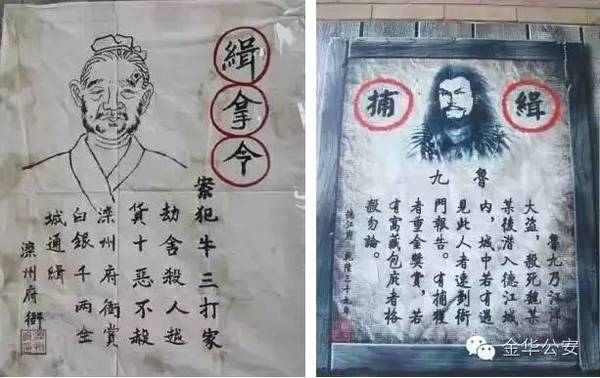 緝拿令
案犯牛三打家
劫舍殺人越
貨十惡不赦
滦州府衙賞
白銀千两全
城通緝
滦州府衙
緝捕
魯九
魯九乃江洋
大盜，殺死魏某
某後潛入德江城
内，城中若有遇
見此人者速到衙
門報告。有捕獲
者重金獎賞，若
有窩藏包庇者格
殺勿論。
金华公安